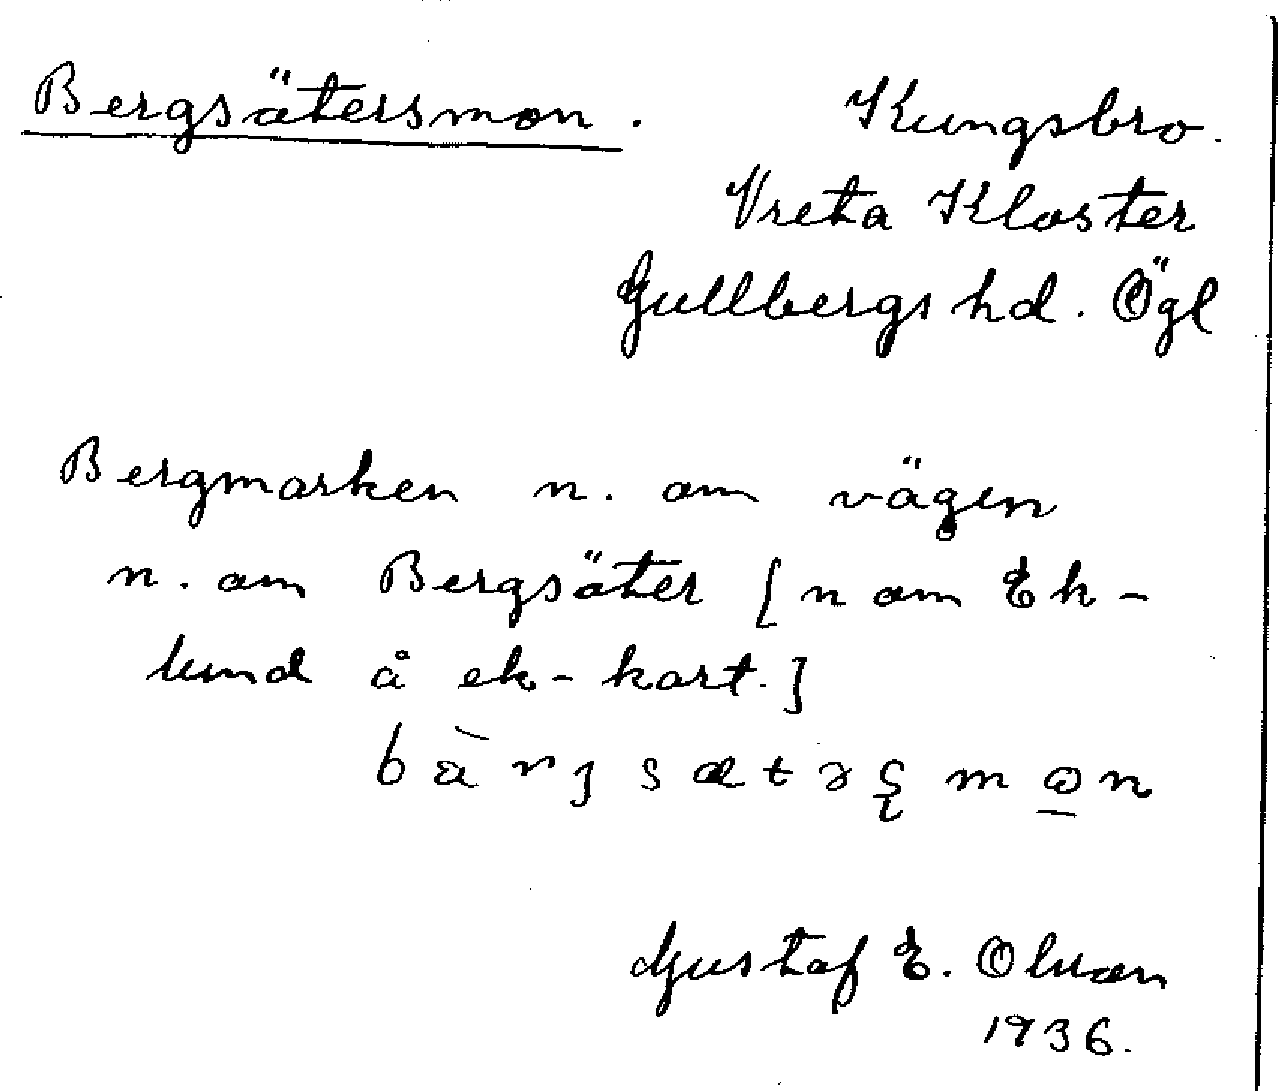 Bergsätersmon. Kungsbro.
Vreta Kloster
Gullbergs hd. Ögl
Bergmarken n. om vägen
n. om Bergsäter [n om Ek-
lund å ek-kart.]
Gustaf E. Olsson
1936.